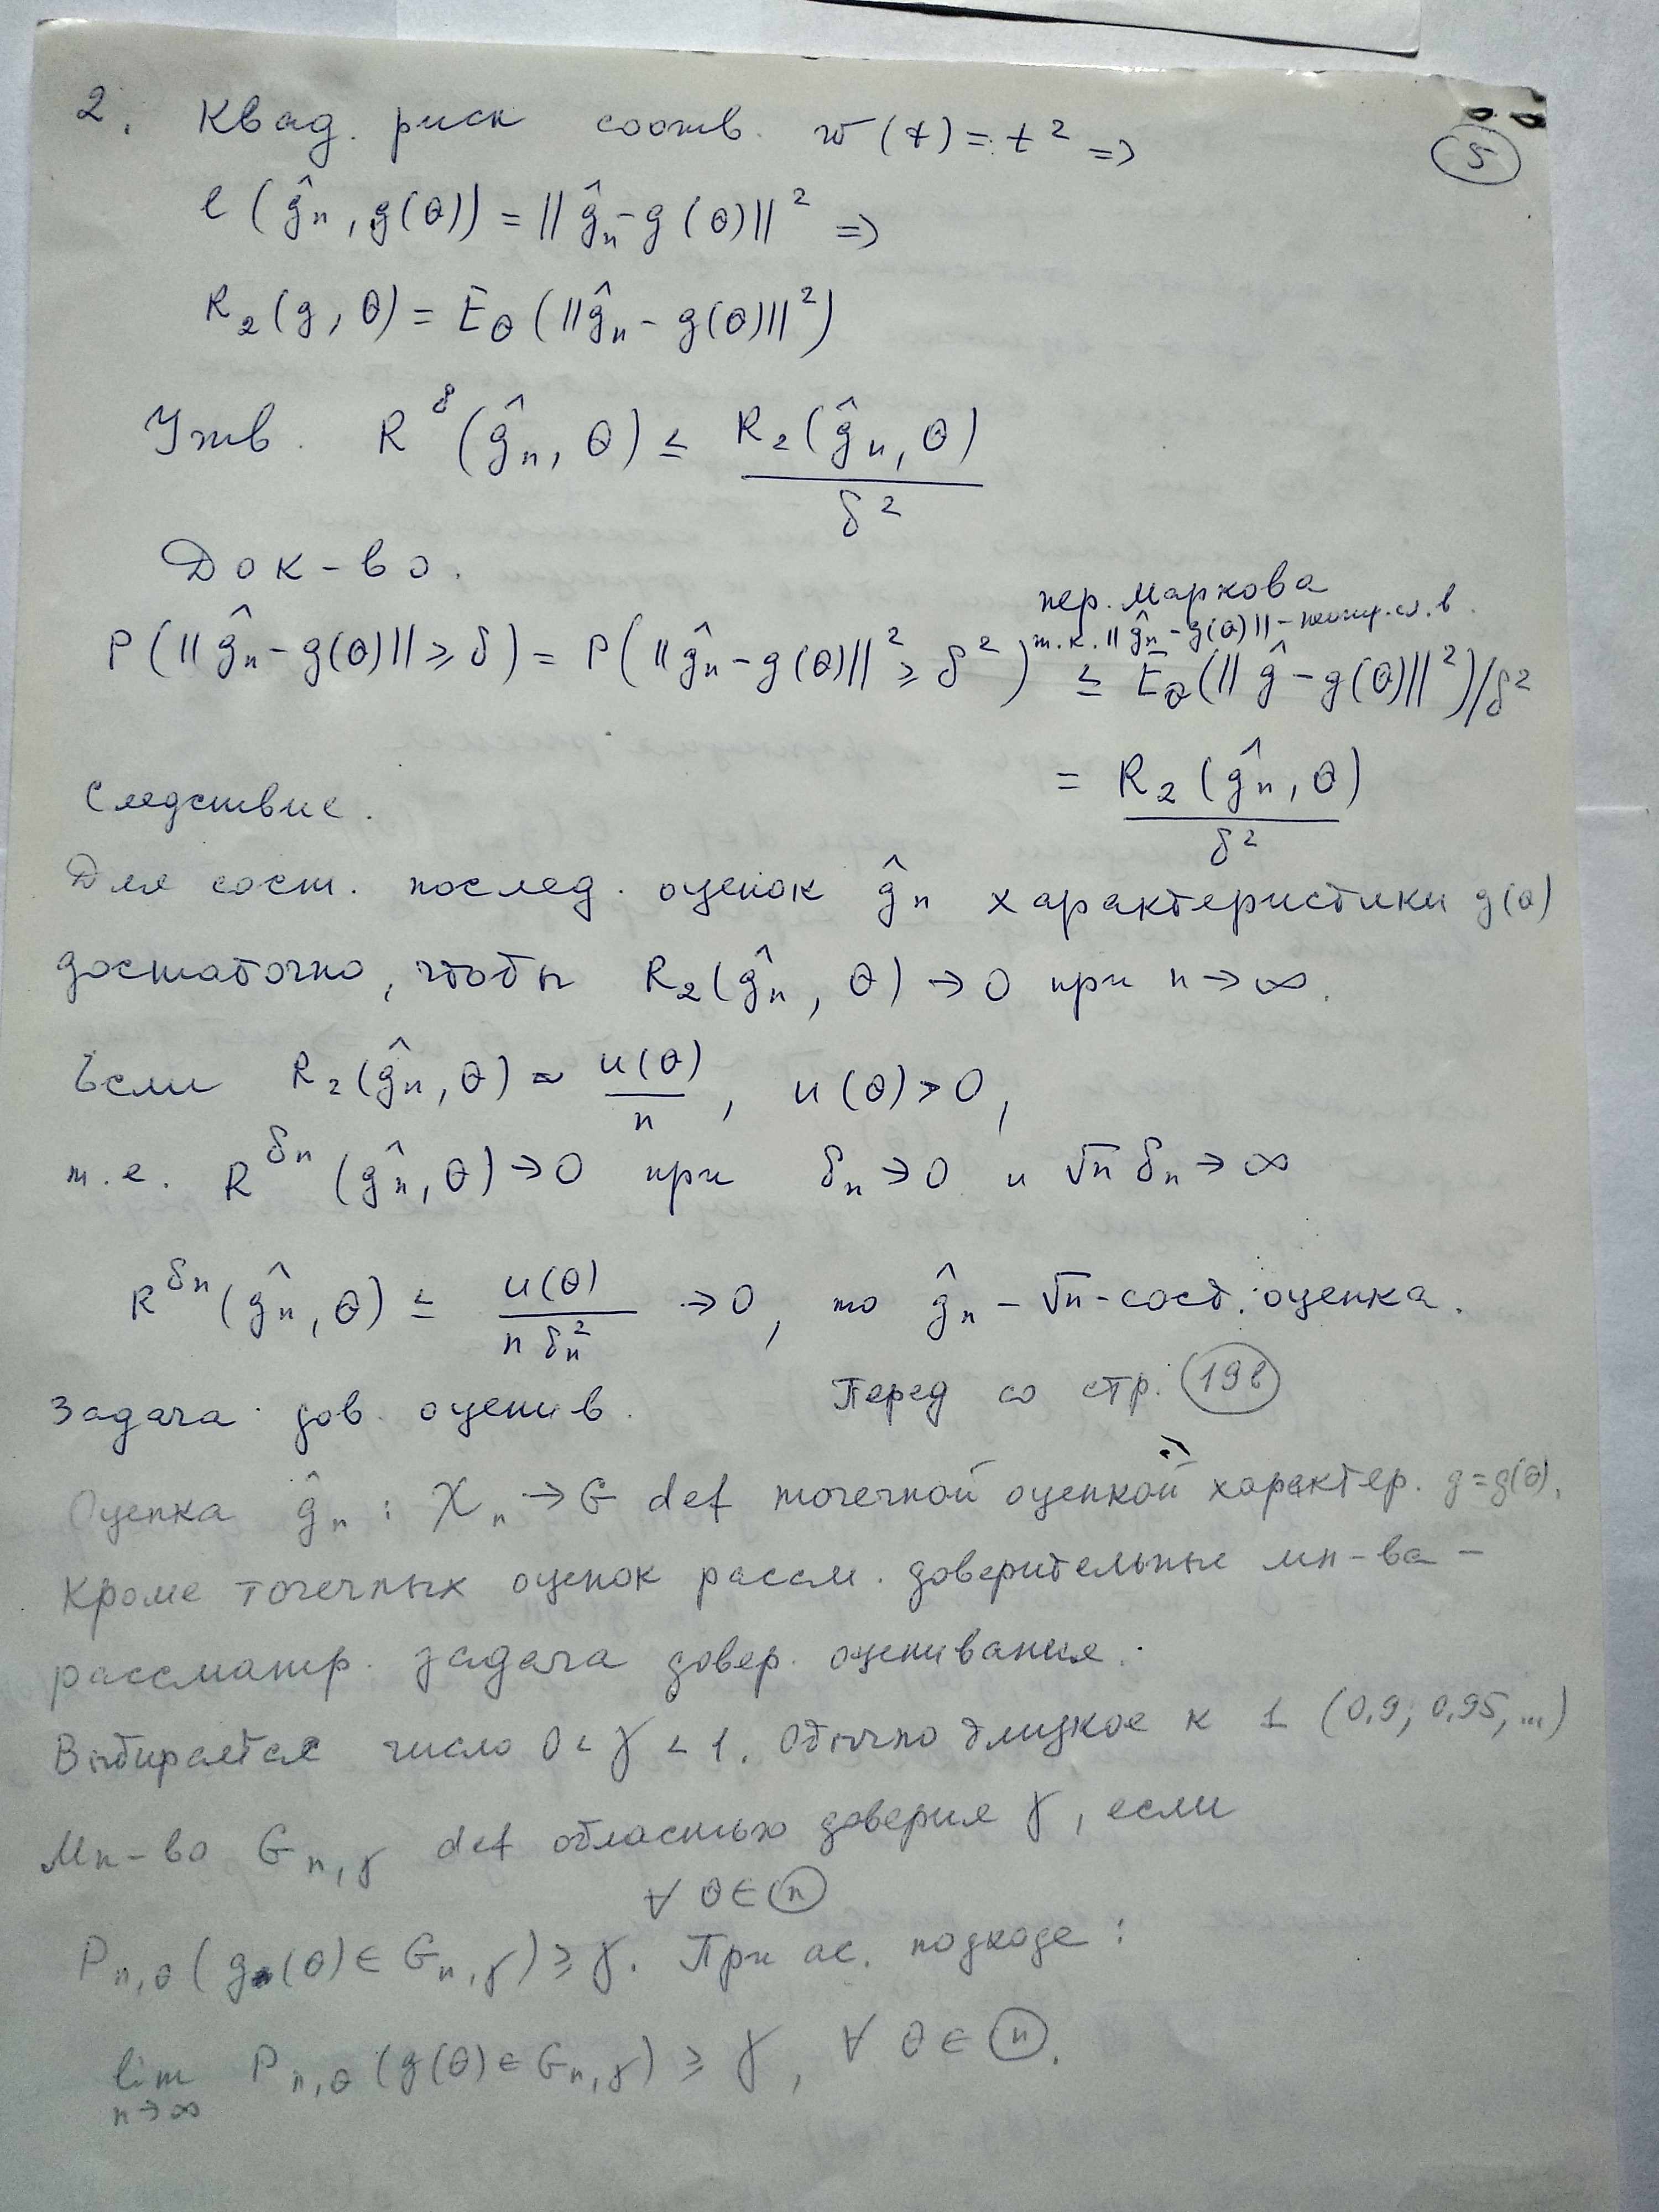 2. Квад. риск соотв. w(t) = t² ⇒
5
l(ĝₙ, g(θ)) = ||ĝₙ - g(θ)||² ⇒
R₂(g, θ) = E_θ(||ĝₙ - g(θ)||²)
Утв. R^δ(ĝₙ, θ) ≤ R₂(ĝₙ, θ) / δ²
Док-во.
нер. Маркова
т.к. ||ĝₙ - g(θ)|| - неотр. сл. в.
P(||ĝₙ - g(θ)|| ≥ δ) = P(||ĝₙ - g(θ)||² ≥ δ²) ≤ E_θ(||ĝ - g(θ)||²)/δ²
= R₂(ĝₙ, θ) / δ²
Следствие.
Для сост. послед. оценок ĝₙ характеристики g(θ)
достаточно, чтобы R₂(ĝₙ, θ) → 0 при n → ∞.
Если R₂(ĝₙ, θ) ≈ u(θ) / n, u(θ) > 0,
т.е. R^δₙ(ĝₙ, θ) → 0 при δₙ → 0 и √n δₙ → ∞
R^δₙ(ĝₙ, θ) ≤ u(θ) / n δₙ² → 0, то ĝₙ - √n-сост. оценка.
Задача дов. оценив. Перед со стр. 19в
Оценка ĝₙ : Xₙ → G def точечной оценкой характер. g = g(θ).
Кроме точечных оценок рассм. доверительные мн-ва -
рассматр. задача довер. оценивания.
Выбирается число 0 < γ < 1. Обычно близкое к 1 (0,9; 0,95, ...)
Мн-во G_n,γ def областью доверия γ, если
∀ θ ∈ Ⓝ
P_n,θ(g(θ) ∈ G_n,γ) ≥ γ. При ас. подходе:
lim n→∞ P_n,θ(g(θ) ∈ G_n,γ) ≥ γ, ∀ θ ∈ Ⓝ.